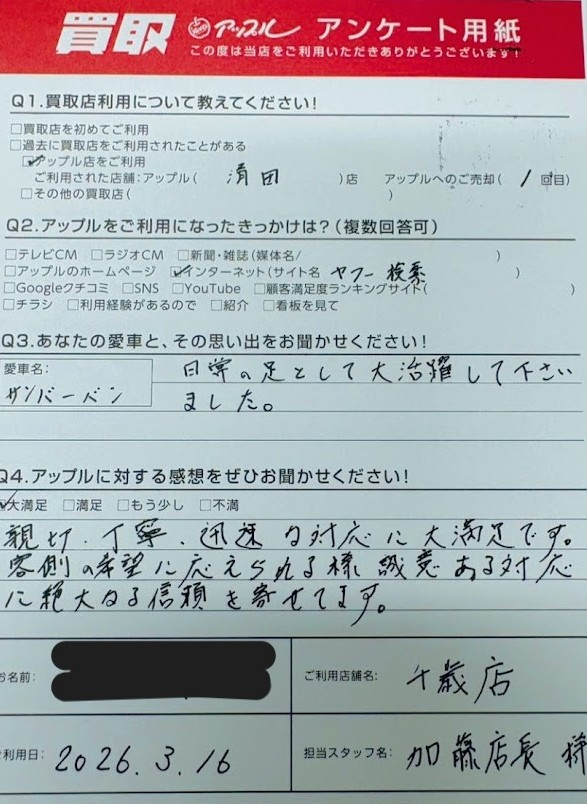 買取 アップル アンケート用紙
この度は当店をご利用いただきありがとうございます!
Q1.買取店利用について教えてください!
□買取店を初めてご利用
□過去に買取店をご利用されたことがある
☑アップル店をご利用
ご利用された店舗:アップル( 清田 )店 アップルへのご売却( 1 回目)
□その他の買取店( )
Q2.アップルをご利用になったきっかけは?(複数回答可)
□テレビCM □ラジオCM □新聞・雑誌(媒体名/ )
□アップルのホームページ ☑インターネット(サイト名 ヤフー検索 )
□Googleクチコミ □SNS □YouTube □顧客満足度ランキングサイト( )
□チラシ □利用経験があるので □紹介 □看板を見て
Q3.あなたの愛車と、その思い出をお聞かせください!
愛車名:
サンバーバン
日常の足として大活躍して下さい
ました。
Q4.アップルに対する感想をぜひお聞かせください!
☑大満足 □満足 □もう少し □不満
親切、丁寧、迅速な対応に大満足です。
客側の希望に応えられる様誠意ある対応
に絶大なる信頼を寄せてます。
お名前:
ご利用店舗名: 千歳店
ご利用日: 2026.3.16
担当スタッフ名: 加藤店長 様